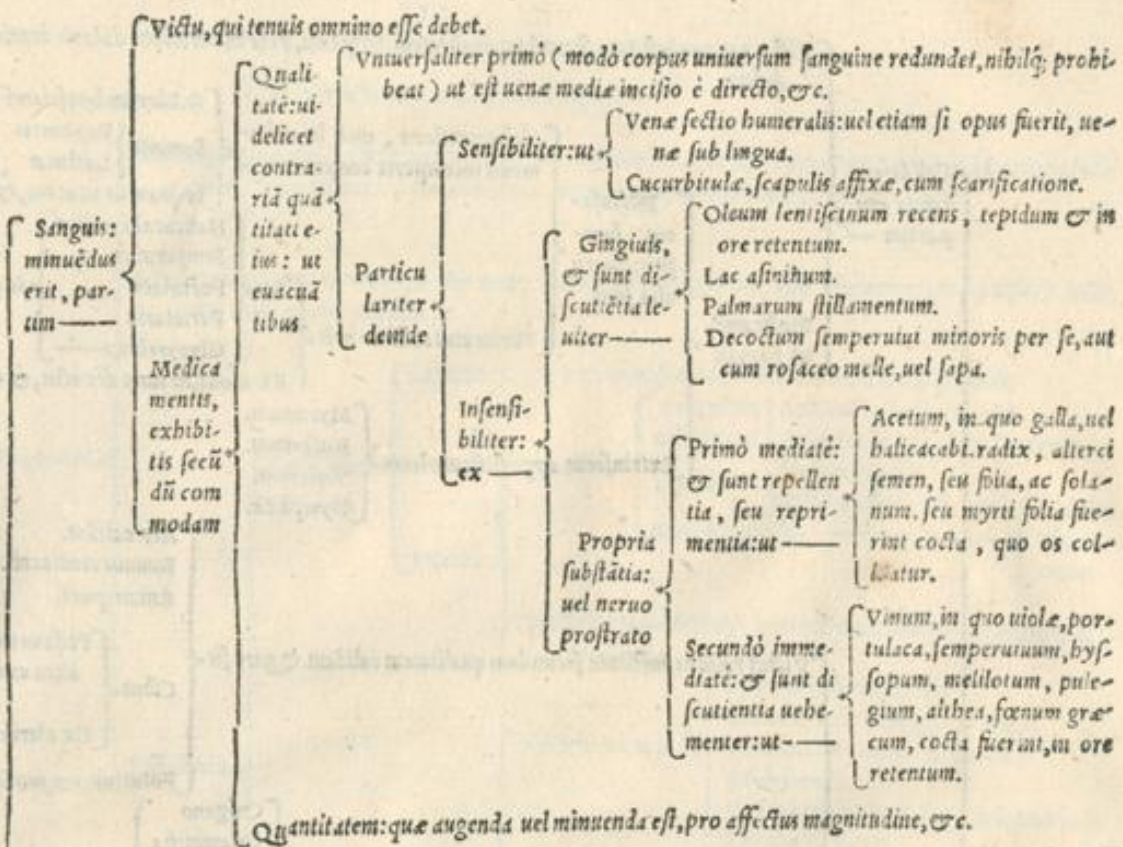 Victu, qui tenuis omnino esse debet.
Sanguis:
minuēdus
erit, par-
tim
Medica
mentis,
exhibi-
tis secū
dū com
modam
Quali-
tatē: ui-
delicet
contra-
riā quā
titati e-
ius: ut
euacuā
tibus
Vniuersaliter primò (modò corpus uniuersum sanguine redundet, nihilq; prohi-
beat) ut est uenæ mediæ incisio è directo, &c.
Particu
lariter
deinde
Sensibiliter: ut
Venæ sectio humeralis: uel etiam si opus fuerit, ue-
næ sub lingua.
Cucurbitulæ, scapulis affixæ, cum scarificatione.
Insensi-
biliter:
ex
Gingiuis,
& sunt di-
scutiētia le-
uiter
Oleum lentiscinum recens, tepidum & in
ore retentum.
Lac asininum.
Palmarum stillamentum.
Decoctum semperuiui minoris per se, aut
cum rosaceo melle, uel sapa.
Propria
substātia:
uel neruo
prostrato
Primò mediatè:
& sunt repellen
tia, seu repri-
mentia: ut
Acetum, in quo galla, uel
halicacabi. radix, alterci
semen, seu folia, ac sola-
num. seu myrti folia fue-
rint cocta, quo os col-
luatur.
Secundò imme-
diatè: & sunt di
scutientia uehe-
menter: ut
Vinum, in quo uiolæ, por-
tulaca, semperuiuum, hys-
sopum, melilotum, pule-
gium, althea, fœnum græ-
cum, cocta fuerint, in ore
retentum.
Quantitatem: quæ augenda uel minuenda est, pro affectus magnitudine, &c.